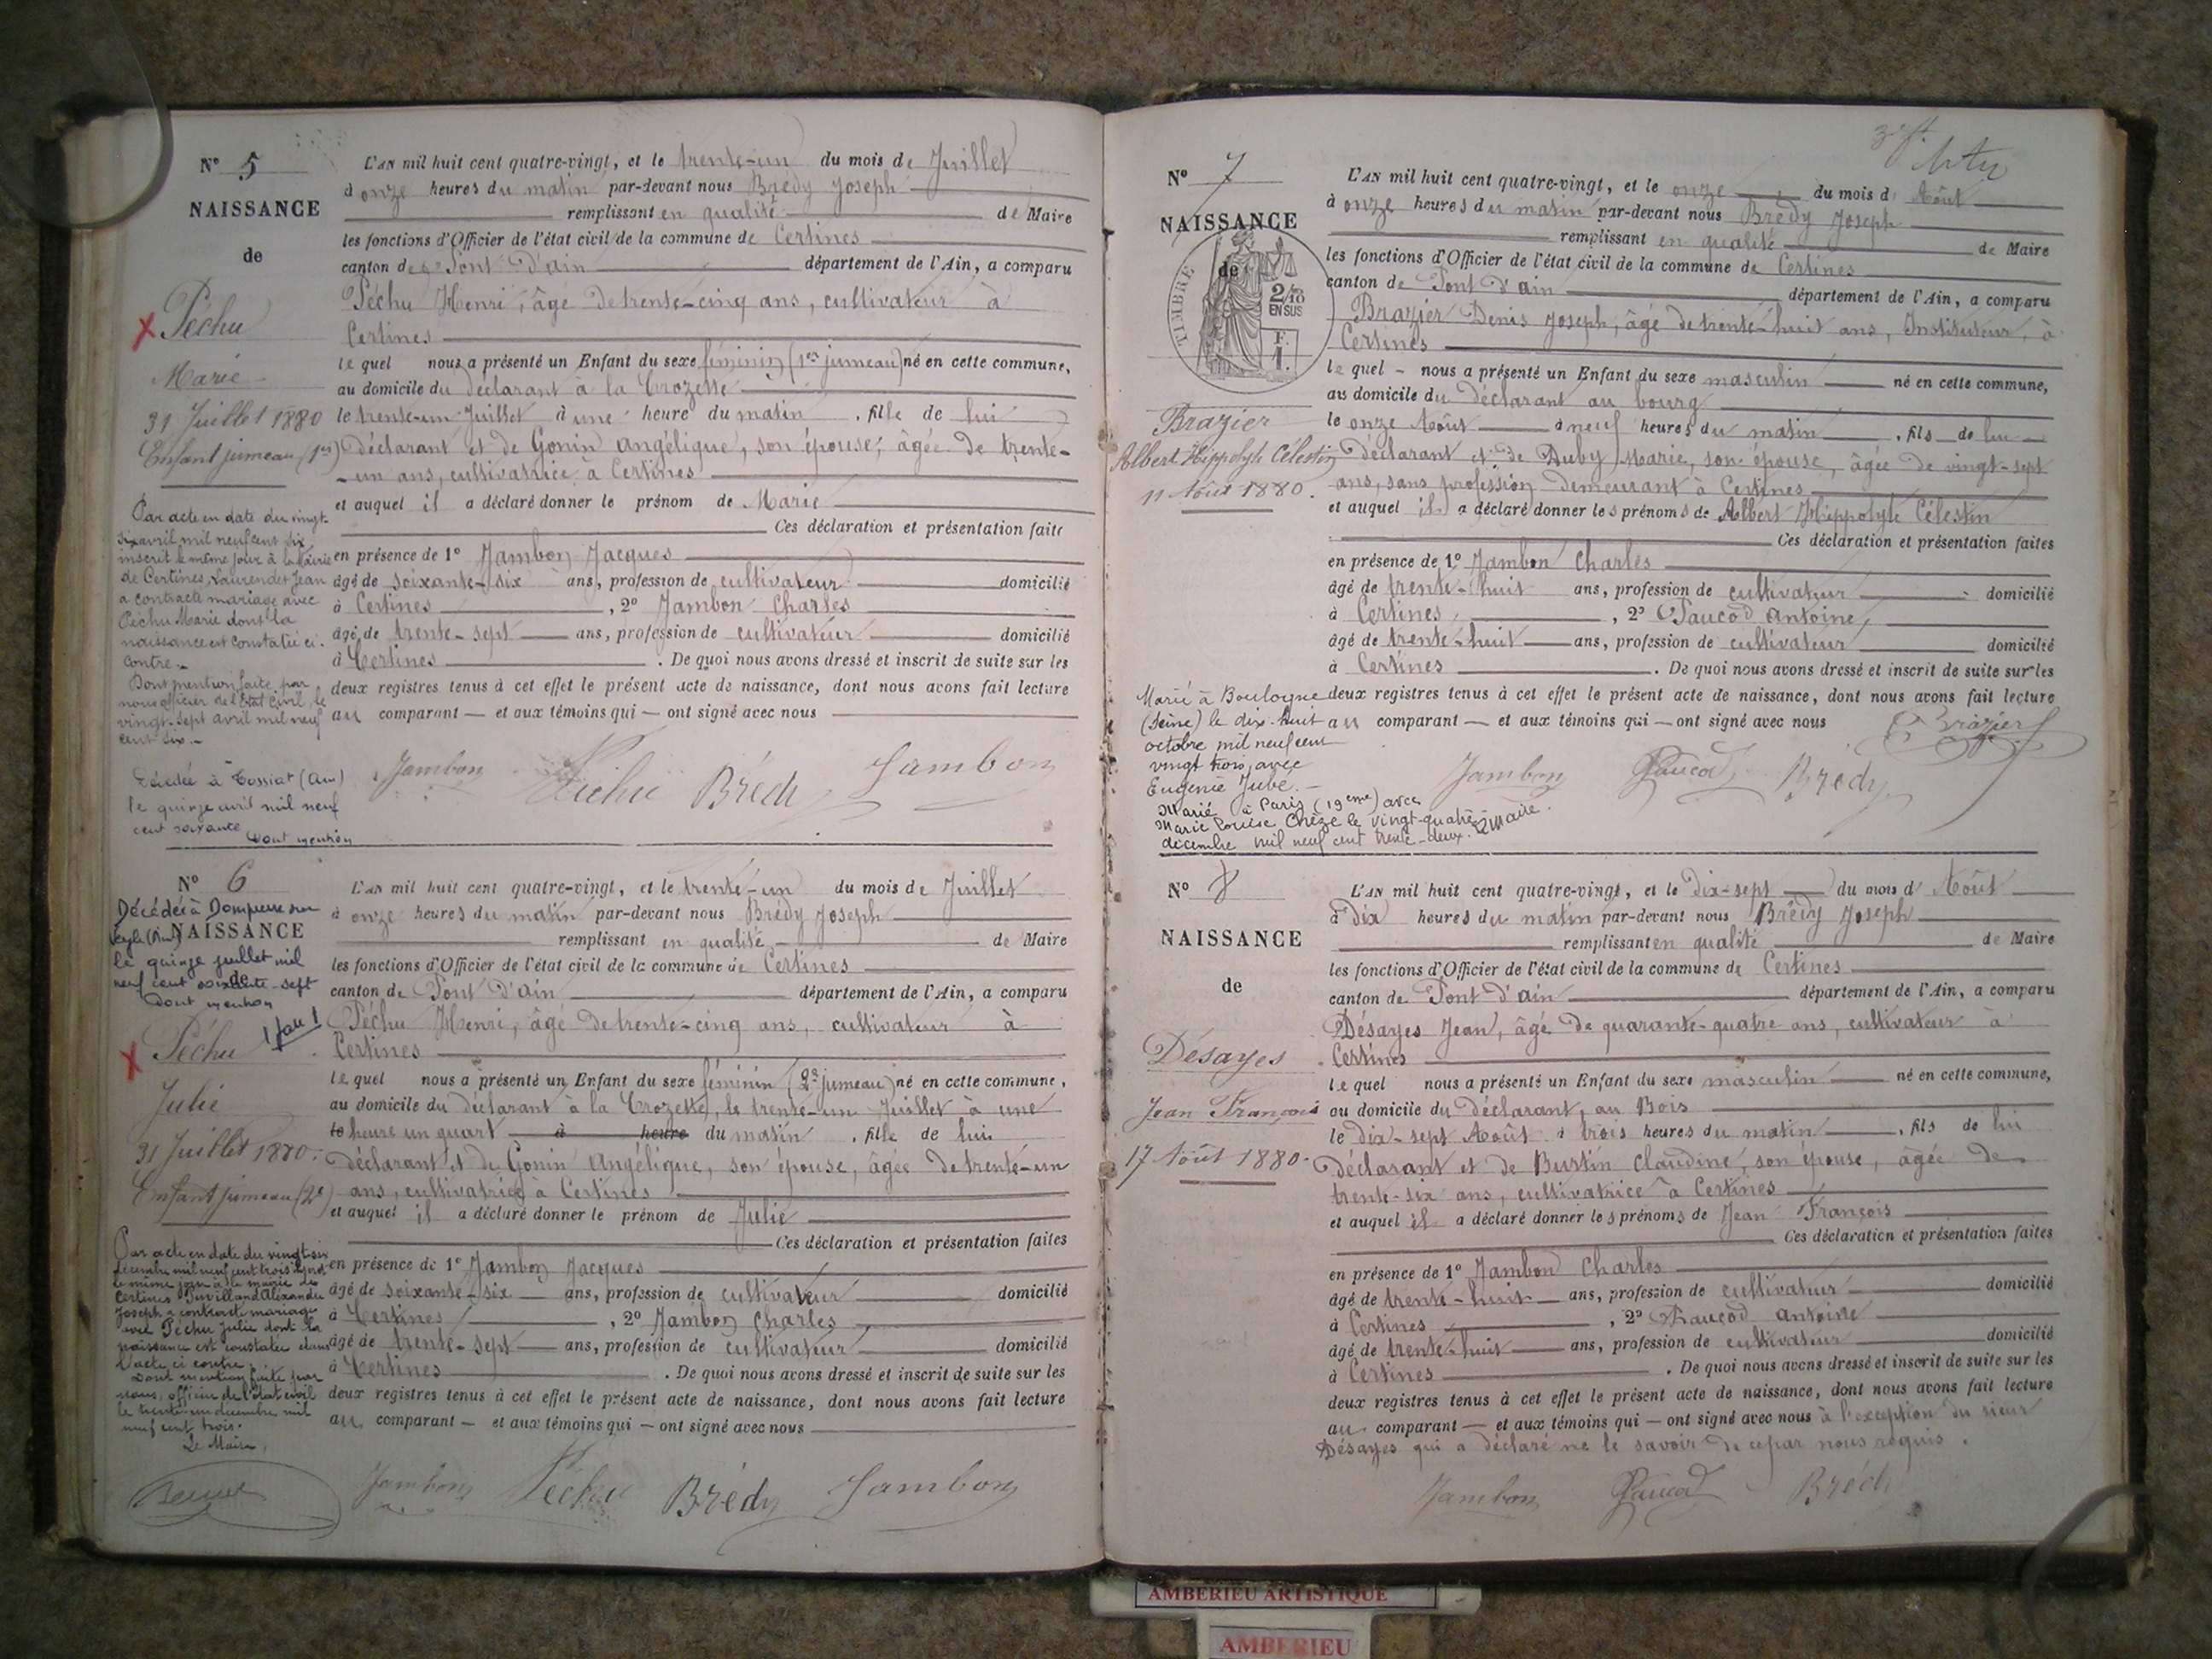 N° 5
NAISSANCE
de
Péchu
Marie
31 Juillet 1880
Enfant jumeau (1er)
Par acte en date du vingt-
six avril mil neuf cent six
inscrit le même jour à la Mairie
de Certines, Laurendet Jean
a contracté mariage avec
Péchu Marie dont la
naissance est constatée ci-
contre.
Dont mention faite par
nous officier de l'Etat Civil, le
vingt-sept avril mil neuf
cent six.
Décédée à Tossiat (Ain)
le quinze avril mil neuf
cent soixante
Dont mention
L'AN mil huit cent quatre-vingt, et le trente-un du mois de Juillet
à onze heures du matin par-devant nous Brédy Joseph
remplissant en qualité de Maire
les fonctions d'Officier de l'état civil de la commune de Certines
canton de Pont d'ain département de l'Ain, a comparu
Péchu Henri, âgé de trente-cinq ans, cultivateur à
Certines
lequel nous a présenté un Enfant du sexe féminin (1er jumeau) né en cette commune,
au domicile du déclarant à la Crozette
le trente-un Juillet à une heure du matin, fille de lui
déclarant et de Gonin Angélique, son épouse, âgée de trente-
-un ans, cultivatrice à Certines
et auquel il a déclaré donner le prénom de Marie
Ces déclaration et présentation faite
en présence de 1° Jambon Jacques
âgé de soixante-six ans, profession de cultivateur domicilié
à Certines, 2° Jambon Charles
âgé de trente-sept ans, profession de cultivateur domicilié
à Certines. De quoi nous avons dressé et inscrit de suite sur les
deux registres tenus à cet effet le présent acte de naissance, dont nous avons fait lecture
au comparant — et aux témoins qui — ont signé avec nous
Jambon Péchu Brédy Jambon
N° 6
Décédée à Dompierre sur
Veyle (Ain)
NAISSANCE
le quinze juillet mil
de
neuf cent soixante-sept
Dont mention
Péchu
Julie
31 Juillet 1880.
Enfant jumeau (2e)
Par acte en date du vingt-six
décembre mil neuf cent trois inscrit
le même jour à la mairie de
Certines Purvilland Alexandre
Joseph a contracté mariage
avec Péchu Julie dont la
naissance est constatée dans
l'acte ci contre.
Dont mention faite par
nous, officier de l'état civil
le trente-un décembre mil
neuf cent trois.
Le Maire,
L'AN mil huit cent quatre-vingt, et le trente-un du mois de Juillet
à onze heures du matin par-devant nous Brédy Joseph
remplissant en qualité de Maire
les fonctions d'Officier de l'état civil de la commune de Certines
canton de Pont d'ain département de l'Ain, a comparu
Péchu Henri, âgé de trente-cinq ans, cultivateur à
Certines
lequel nous a présenté un Enfant du sexe féminin (2e jumeau) né en cette commune,
au domicile du déclarant à la Crozette, le trente-un Juillet à une
le heure un quart à heure du matin, fille de lui
déclarant et de Gonin Angélique, son épouse, âgée de trente-un
ans, cultivatrice à Certines
et auquel il a déclaré donner le prénom de Julie
Ces déclaration et présentation faites
en présence de 1° Jambon Jacques
âgé de soixante-six ans, profession de cultivateur domicilié
à Certines, 2° Jambon Charles
âgé de trente-sept ans, profession de cultivateur domicilié
à Certines. De quoi nous avons dressé et inscrit de suite sur les
deux registres tenus à cet effet le présent acte de naissance, dont nous avons fait lecture
au comparant — et aux témoins qui — ont signé avec nous
Jambon Péchu Brédy Jambon
N° 7
NAISSANCE
de
TIMBRE
2/10
EN SUS
F.
1.
Brazier
Albert Hippolyte Célestin
11 Août 1880.
Marié à Boulogne
(Seine) le dix-huit
octobre mil neuf cent
vingt trois, avec
Eugénie Jubé.
Marié à Paris (19eme) avec
Marie Louise Chèze le vingt-quatre
décembre mil neuf cent trente-deux.
L'AN mil huit cent quatre-vingt, et le onze du mois d' Août
à onze heures du matin par-devant nous Brédy Joseph
remplissant en qualité de Maire
les fonctions d'Officier de l'état civil de la commune de Certines
canton de Pont d'ain département de l'Ain, a comparu
Brazier Denis Joseph, âgé de trente-huit ans, Instituteur, à
Certines
lequel - nous a présenté un Enfant du sexe masculin né en cette commune,
au domicile du déclarant au bourg
le onze Août à neuf heures du matin, fils de lui
déclarant et de Duby Marie, son épouse, âgée de vingt-sept
ans, sans profession demeurant à Certines
et auquel il a déclaré donner les prénoms de Albert Hippolyte Célestin
Ces déclaration et présentation faites
en présence de 1° Jambon Charles
âgé de trente-huit ans, profession de cultivateur domicilié
à Certines, 2° Paucod Antoine,
âgé de trente-huit ans, profession de cultivateur domicilié
à Certines. De quoi nous avons dressé et inscrit de suite sur les
deux registres tenus à cet effet le présent acte de naissance, dont nous avons fait lecture
au comparant — et aux témoins qui — ont signé avec nous
Brazier
Jambon Paucod Brédy
N° 8
NAISSANCE
de
Désayes
Jean François
17 Août 1880.
L'AN mil huit cent quatre-vingt, et le dix-sept du mois d' Août
à dix heures du matin par-devant nous Brédy Joseph
remplissant en qualité de Maire
les fonctions d'Officier de l'état civil de la commune de Certines
canton de Pont d'ain département de l'Ain, a comparu
Désayes Jean, âgé de quarante-quatre ans, cultivateur à
Certines
lequel nous a présenté un Enfant du sexe masculin né en cette commune,
au domicile du déclarant, au Bois
le dix-sept Août à trois heures du matin, fils de lui
déclarant et de Burtin Claudine, son épouse, âgée de
trente-six ans, cultivatrice à Certines
et auquel il a déclaré donner les prénoms de Jean François
Ces déclaration et présentation faites
en présence de 1° Jambon Charles
âgé de trente-huit ans, profession de cultivateur domicilié
à Certines, 2° Paucod Antoine
âgé de trente-huit ans, profession de cultivateur domicilié
à Certines. De quoi nous avons dressé et inscrit de suite sur les
deux registres tenus à cet effet le présent acte de naissance, dont nous avons fait lecture
au comparant — et aux témoins qui — ont signé avec nous à l'exception du sieur
Désayes qui a déclaré ne le savoir de ce par nous requis.
Jambon Paucod Brédy
AMBERIEU ARTISTIQUE
AMBERIEU